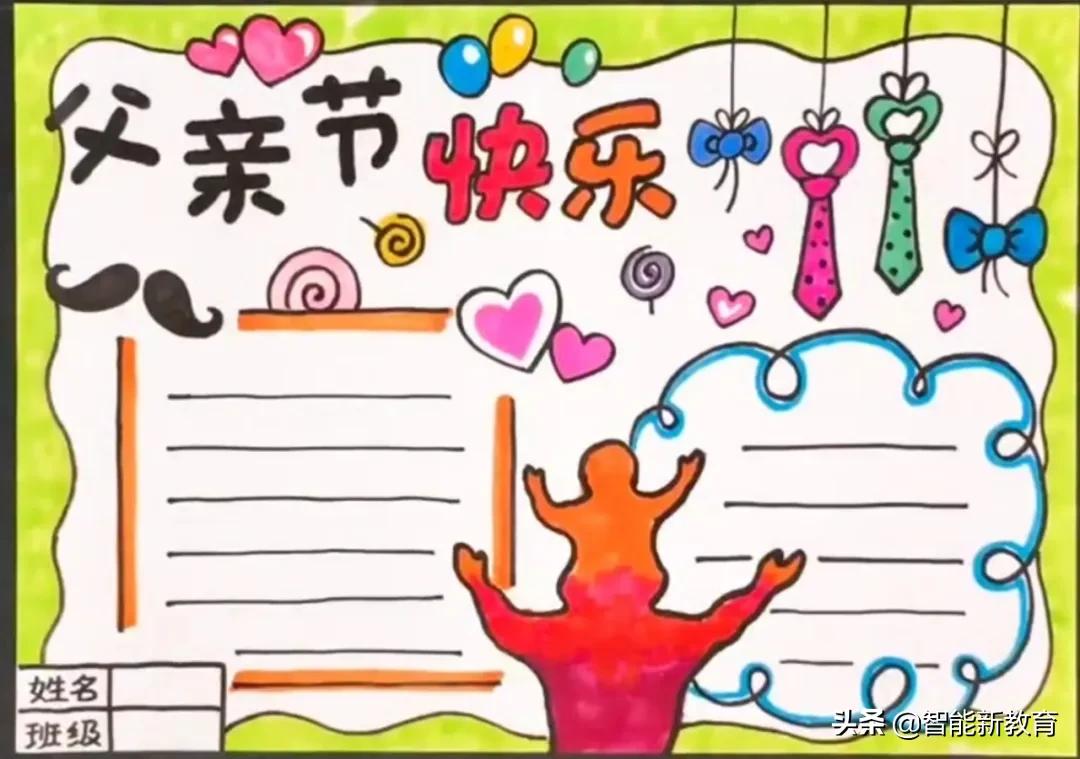 父亲节快乐
姓名
班级
头条 @智能新教育